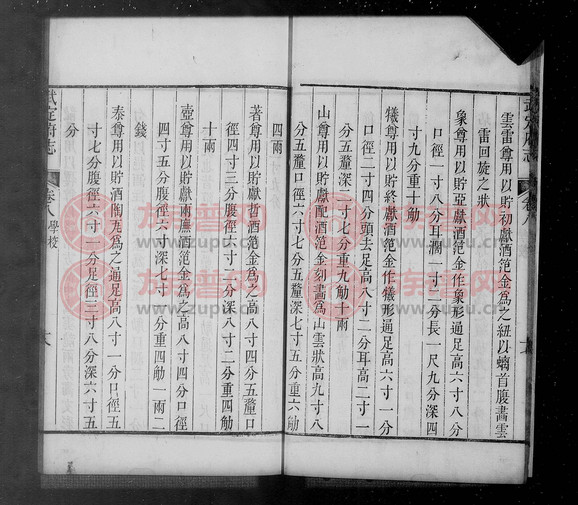 雲雷尊用以貯初獻酒笵金爲之紐以螭首腹畫雲
雷回旋之狀
象尊用以貯亞獻酒笵金作象形通足高六寸八分
口徑一寸八分耳濶一寸二分長一尺九分深四
寸九分重十觔
犧尊用以貯終獻酒笵金作犧形通足高六寸一分
口徑二寸四分頭去足高八寸二分耳高二寸一
分五釐深二寸七分重九觔十兩
山尊用以貯獻配酒笵金刻畵爲山雲狀高九寸八
分五釐口徑六寸七分五釐深七寸五分五釐重六觔
四兩
著尊用以貯獻哲酒笵金爲之高八寸四分五釐口
徑四寸三分腹徑六寸二分深八寸二分重四觔
十兩
壺尊用以貯獻兩廡酒笵金爲之高八寸四分口徑
四寸五分腹徑六寸深七寸 分重四觔一兩二
錢
泰尊用以貯酒陶瓦爲之通足高八寸一分口徑五
寸七分腹徑六寸一分足徑三寸八分深六寸五
分
武定府志
卷八
學校
武定府志
卷八
族譜网
www.zupu.cn
族譜网
www.zupu.cn